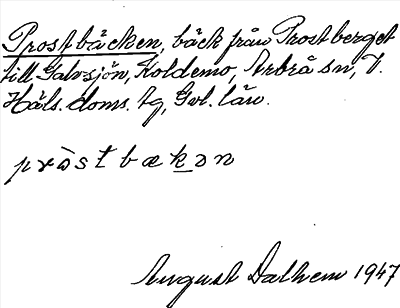 Prostbäcken, bäck från Prostberget
till Galvsjön, Koldemo, Arbrå sn, V.
Häls. doms. tg, Gvl. län.
pròstbækən
August Dalhem 1947